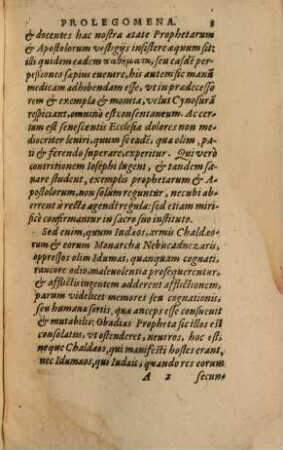 PROLEGOMENA. 3
& docentes hac nostra ætate Prophetarum
& Apostolorum vestigijs insistere æquum sit:
illi quidem eadem παθήματα, seu easdē per-
pessiones sæpius evenire, his autem sic manū
medicam adhibendam esse, vt in prædecesso
rem & exempla & monita, velut Cynosurā
respiciant, omninò est consentaneum. Ac cer-
tum est senescentis Ecclesiæ dolores non me-
diocriter leniri, quum se eadē, qua olim, pa-
ti & ferendo superare, experitur. Qui verò
contritionem Iosephi lugent, & tandem sa-
nare student, exemplis prophetarum & A-
postolorum, non solùm reguntur, necubi ab-
errent à recta agendi regula: sed etiam miri-
ficè confirmantur in sacro suo instituto.
Sed enim, quum Iudæos, armis Chaldæo-
rum & eorum Monarchæ Nebucadnezaris,
oppressos olim Idumæi, quanquam cognati,
rancore odio, malevolentia prosequerentur,
& afflictis ingentem adderent afflictionem,
parum videlicet memores seu cognationis,
seu humanæ sortis, quæ anceps esse consuevit
& mutabilis: Obadias Propheta sic illos est
consolatus, vt ostenderet, neutros, hoc est,
neque Chaldæos, qui manifesti hostes erant,
nec Idumæos, qui Iudæis, quando res eorum
A 2 secun-